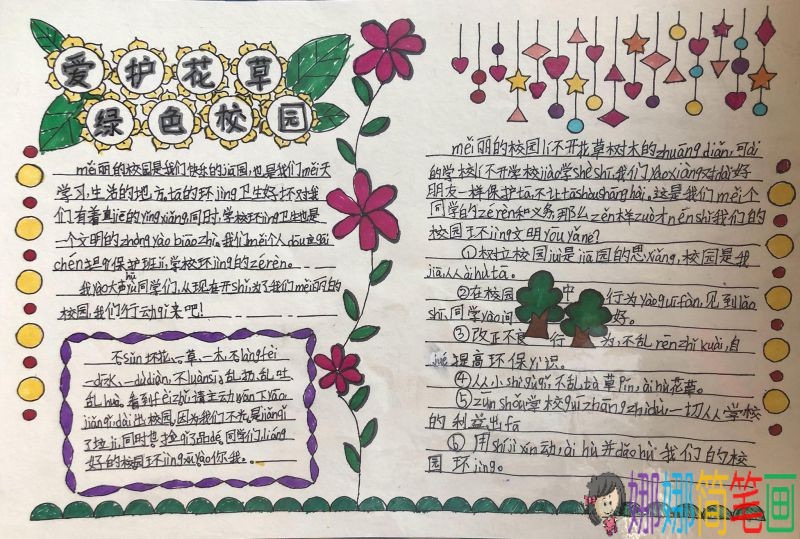 爱护花草
绿色校园
měi丽的校园是我们快乐的jiā园,也是我们měi天
学习,生活的地方。tā的环jìng卫生好坏对我
们有着直jiē的yǐng xiǎng,同时,学校环jìng卫生也是
一个文明的zhòng yào biāo zhì。我们měi个人dōu应gāi
chéng担保护班jí,学校环jìng的zé rèn。
我yào大声hū yù同学们,从现在开shǐ,为了我们měi丽的
校园,我们行动qǐ来吧!
不sǔn坏花一草,一木,不làng fèi
一dī水、一dù diàn,不luàn sī,乱扔,乱吐,
乱huà,看到fèi zhǐ请主动wān下yāo
jiǎng
了垃jī,同时
好的校园环jìng xū yào你我。
měi丽的校园lí不开花草树木的zhuāng diǎn,可ài
的学校lí不开学校jiào学shè shī,我们yào xiàng对dài好
朋友一样保护tā,不让tā shòu shāng hài,这是我们měi个
同学的zé rèn和义务,那么zěn样zuò才néng shǐ我们的
校园环jìng文明yōu yǎ ne?
①树立校园jiù是jiā园的思xiǎng,校园是我
jiā,人人ài hù tā。
②在校园中行为yào guī fàn,见到lǎo
shī,同学yào问好。
③改正不良行为,不乱rēng zhǐ kuài,自
jué提高环保yì识。
④从小shì gù qǐ不乱tà草píng,ài hù花草。
⑤zūn shǒu学校guī zhāng zhì dù,一切从学校
的利益出fā
⑥用shí jì xíng动,ài hù并dǎo hù我们的校
园环jìng。
娜娜简笔画